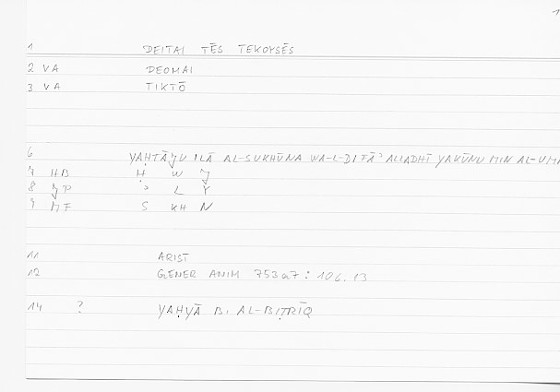 1 DEITAI TĒS TEKOYSĒS
2 VA DEOMAI
3 VA TIKTŌ
6 YAḤTĀJU ILĀ AL-SUKHŪNA WA-L-DIFĀʾ ALLADHĪ YAKŪNU MIN AL-UMM
7 HB Ḥ W J
8 JP ʾ L Y
9 MF S KH N
11 ARIST
12 GENER ANIM 753a7 : 106.13
14 ? YAḤYĀ B. AL-BIṬRĪQ